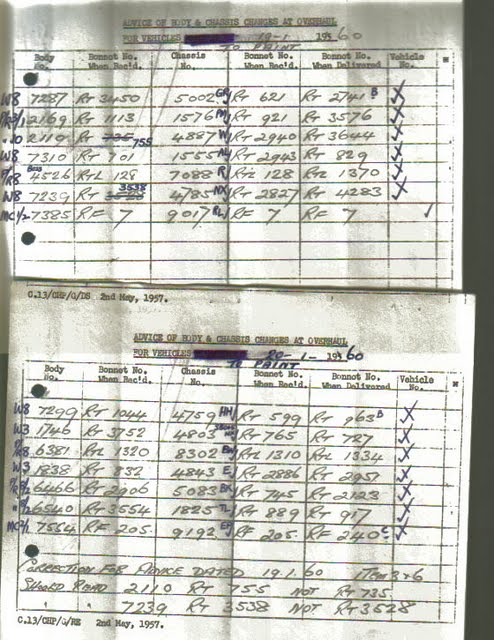 ADVICE OF BODY & CHASSIS CHANGES AT OVERHAUL
FOR VEHICLES 19-1 1960
TO PAINT
Body No. Bonnet No. When Rec'd. Chassis No. Bonnet No. When Rec'd. Bonnet No. When Delivered Vehicle No. *
W8 7287 RT 3450 5002 RT 621 RT 2741 B X
1 2169 RT 1113 1576 RT 921 RT 3576 X
2110 RT 735 755 4887 W RT 2940 RT 3644 X
W8 7310 RT 701 1555 RT 2943 RT 829 X
P/R8 4526 RTL 128 7088 R RTL 128 RTL 1370 X
W8 7239 RT 3528 3538 4785 NX RT 2827 RT 4283 X
MC1/2 7385 RF 7 9017 RL RF 7 RF 7 ✓
C.13/CHP/G/DS 2nd May, 1957.
ADVICE OF BODY & CHASSIS CHANGES AT OVERHAUL
FOR VEHICLES 20-1-1960
TO PAINT
Body No. Bonnet No. When Rec'd. Chassis No. Bonnet No. When Rec'd. Bonnet No. When Delivered Vehicle No. *
W8 7299 RT 1044 4759 HH RT 599 RT 963 B X
W3 1746 RT 3752 4803 RT 765 RT 727 X
P/R8 6381 RTL 1320 8302 RTL 1310 RTL 1334 X
W3 1838 RT 832 4843 E RT 2886 RT 2951 X
6466 RT 2906 5083 BK RT 745 RT 2123 X
6540 RT 3554 1825 TL RT 889 RT 917 X
7554 RF 205 9192 RF 205 RF 240 C X
CORRECTION FOR ADVICE DATED 19.1.60 ITEM 3+6
SHOULD READ 2110 RT 755 NOT RT 735
7239 RT 3538 NOT RT 3528
C.13/CHP/G/RE 2nd May, 1957.